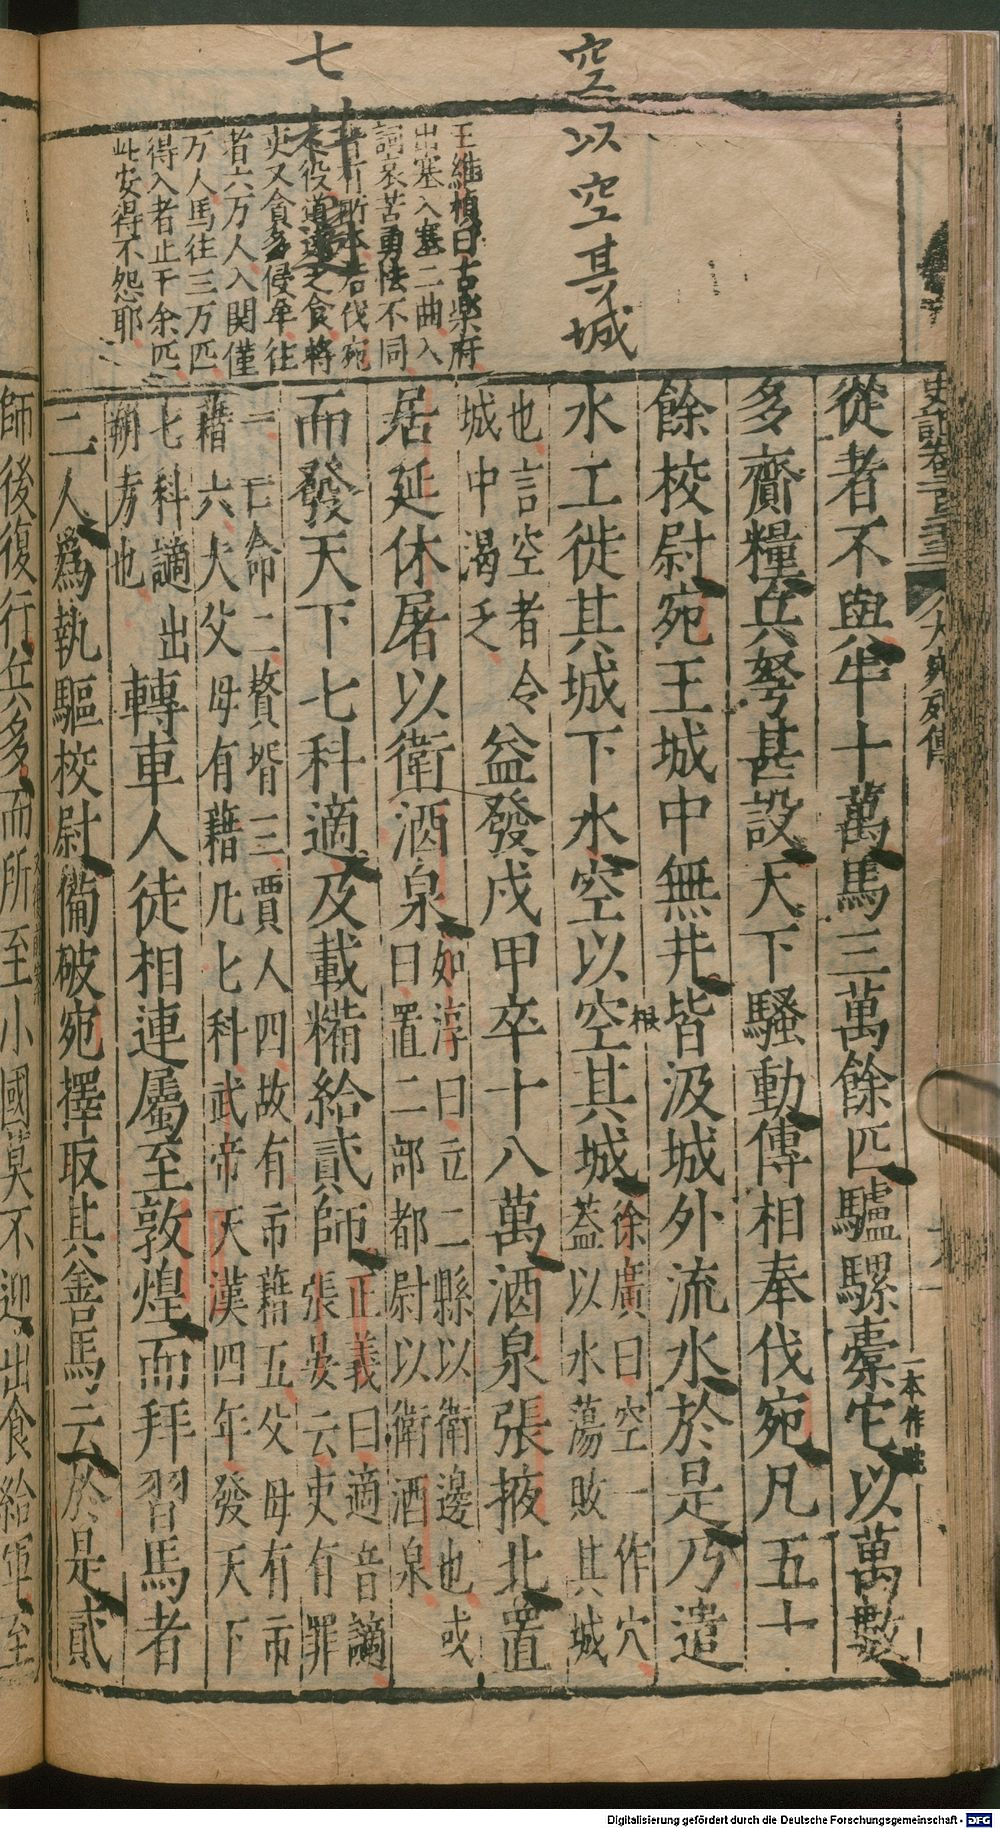 空
七
以空其城
王維楨曰古樂府
出塞入塞二曲入
詞哀苦勇怯不同
者六万人入関僅
万人馬往三万匹
得入者止千余匹
此安得不怨耶
史記卷一百二十三
大宛列傳
從者不與牛十萬馬三萬餘匹驢騾橐它以萬數
一本作
多齎糧兵弩甚設天下騷動傳相奉伐宛凡五十
餘校尉宛王城中無井皆汲城外流水於是乃遣
水工徙其城下水空以空其城
徐廣曰空一作穴
蓋以水蕩敗其城
也言空者令
城中渴乏
益發戍甲卒十八萬酒泉張掖北置
居延休屠以衛酒泉
如淳曰立二縣以衛邊也或
曰置二部都尉以衛酒泉
而發天下七科適及載糒給貳師
正義曰適音謫
張晏云吏有罪
一亡命二贅壻三賈人四故有市藉五父母有市
藉六大父母有藉凡七科武帝天漢四年發天下
七科謫出
朔方也
轉車人徒相連屬至敦煌而拜習馬者
二人爲執驅校尉備破宛擇取其善馬云於是貳
師後復行兵多而所至小國莫不迎出食給軍至
Digitalisierung gefördert durch die Deutsche Forschungsgemeinschaft - DFG